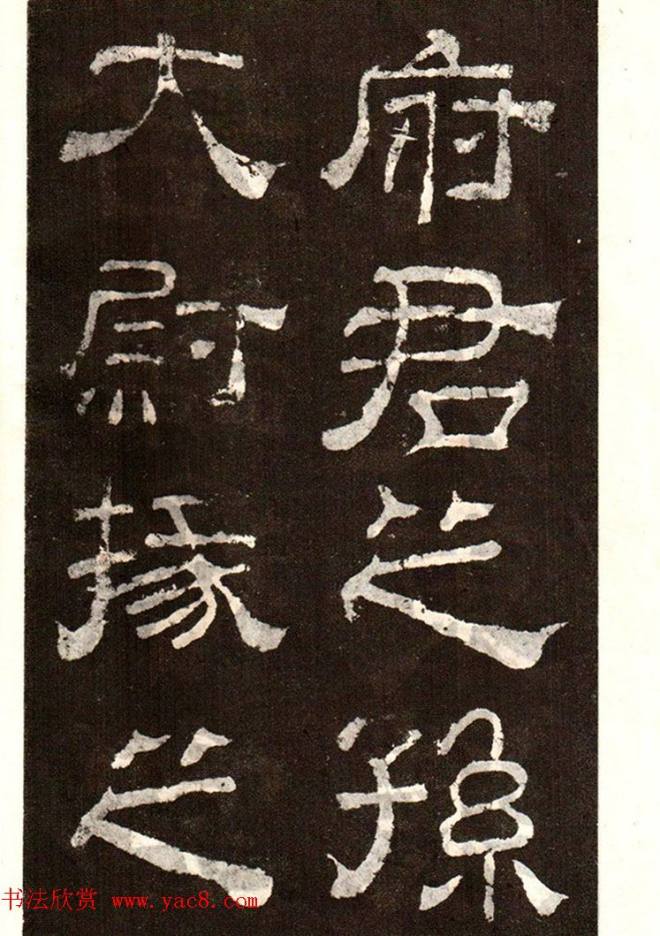 府君之孫
大尉掾之
书法欣赏 www.yac8.com